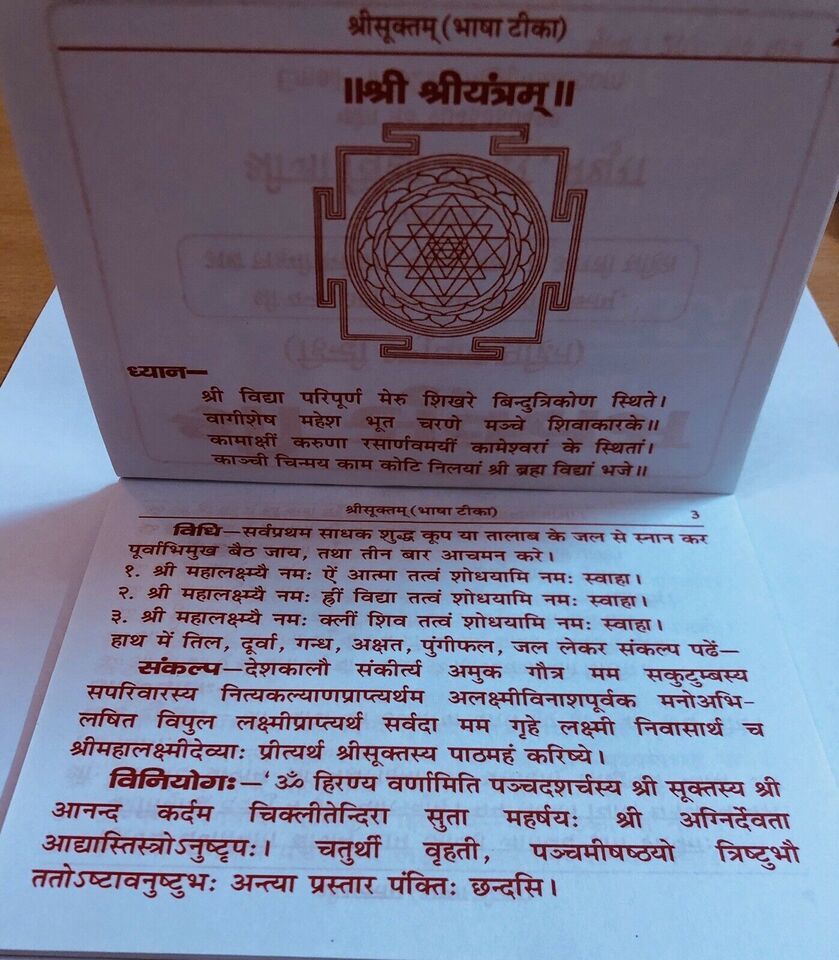 श्रीसूक्तम् (भाषा टीका)
॥श्री श्रीयंत्रम्॥
ध्यान—
श्री विद्या परिपूर्ण मेरु शिखरे बिन्दुत्रिकोण स्थिते।
वागीशेष महेश भूत चरणे मञ्चे शिवाकारके॥
कामाक्षीं करुणा रसार्णवमयीं कामेश्वरां के स्थितां।
काञ्ची चिन्मय काम कोटि निलयां श्री ब्रह्म विद्यां भजे॥
श्रीसूक्तम् (भाषा टीका) 3
विधि—सर्वप्रथम साधक शुद्ध कूप या तालाब के जल से स्नान कर
पूर्वाभिमुख बैठ जाय, तथा तीन बार आचमन करे।
१. श्री महालक्ष्म्यै नमः ऐं आत्मा तत्वं शोधयामि नमः स्वाहा।
२. श्री महालक्ष्म्यै नमः ह्रीं विद्या तत्वं शोधयामि नमः स्वाहा।
३. श्री महालक्ष्म्यै नमः क्लीं शिव तत्वं शोधयामि नमः स्वाहा।
हाथ में तिल, दूर्वा, गन्ध, अक्षत, पुंगीफल, जल लेकर संकल्प पढें—
संकल्प—देशकालौ संकीर्त्य अमुक गौत्र मम सकुटुम्बस्य
सपरिवारस्य नित्यकल्याणप्राप्त्यर्थम अलक्ष्मीविनाशपूर्वक मनोअभि-
लषित विपुल लक्ष्मीप्राप्त्यर्थ सर्वदा मम गृहे लक्ष्मी निवासार्थ च
श्रीमहालक्ष्मीदेव्याः प्रीत्यर्थ श्रीसूक्तस्य पाठमहं करिष्ये।
विनियोगः—‘ॐ हिरण्य वर्णामिति पञ्चदशर्चस्य श्री सूक्तस्य श्री
आनन्द कर्दम चिक्लीतेन्दिरा सुता महर्षयः श्री अग्निर्देवता
आद्यास्तिस्त्रोऽनुष्टृपः। चतुर्थी वृहती, पञ्चमीषष्ठयो त्रिष्टुभौ
ततोऽष्टावनुष्टुभः अन्त्या प्रस्तार पंक्तिः छन्दसि।